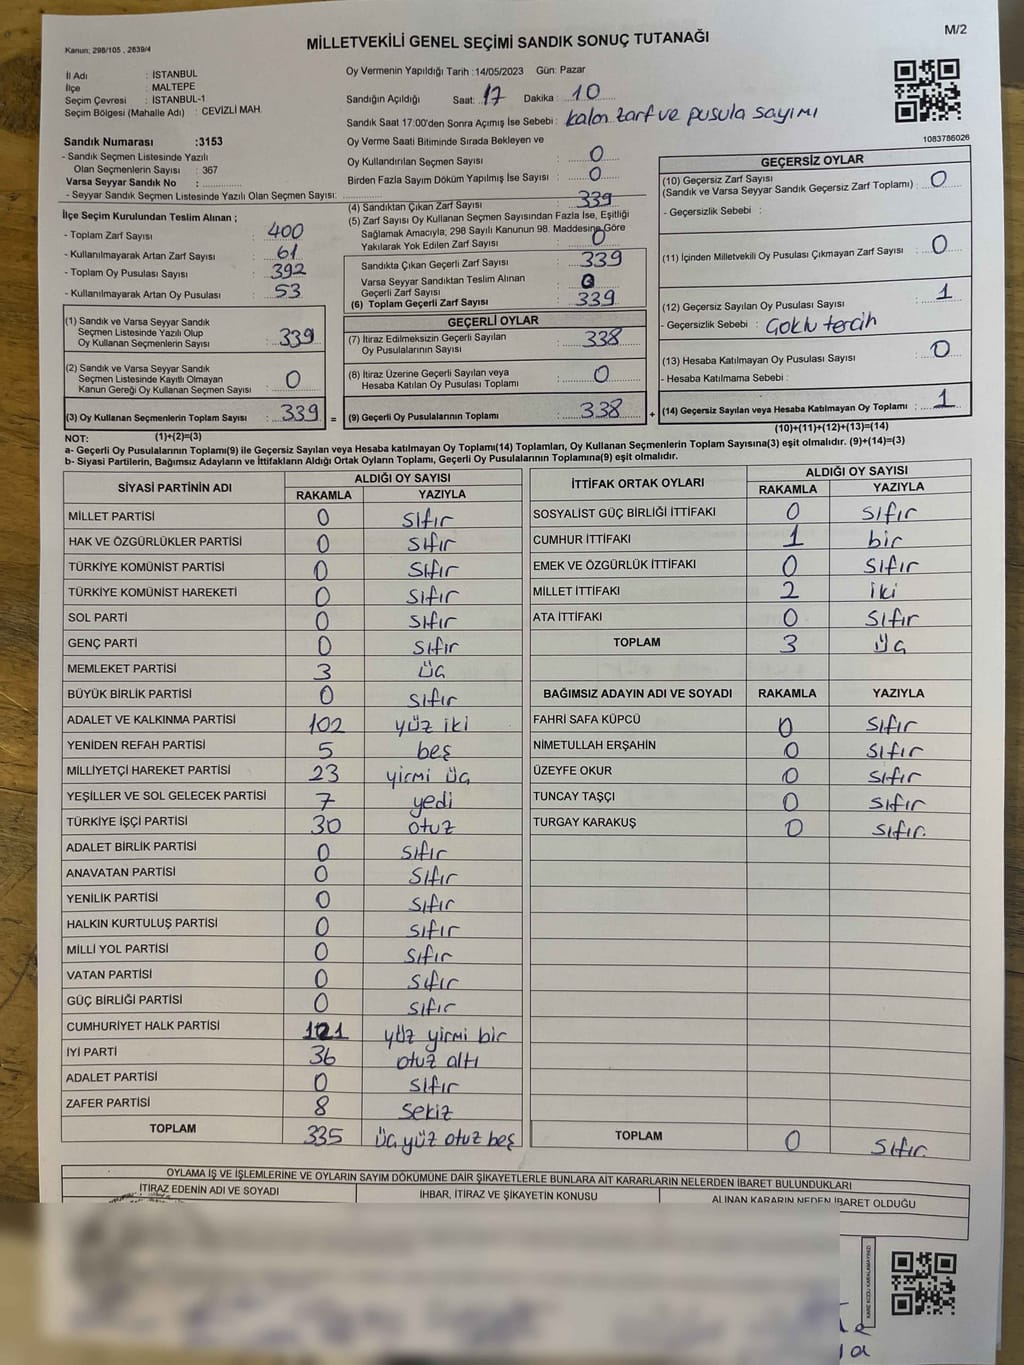 Kanun; 298/105 , 2839/4
MİLLETVEKİLİ GENEL SEÇİMİ SANDIK SONUÇ TUTANAĞI
M/2
İl Adı : İSTANBUL
İlçe : MALTEPE
Seçim Çevresi : İSTANBUL-1
Seçim Bölgesi (Mahalle Adı) : CEVİZLİ MAH.
Oy Vermenin Yapıldığı Tarih :14/05/2023 Gün: Pazar
Sandığın Açıldığı Saat: 17 Dakika : 10
Sandık Saat 17:00'den Sonra Açımış İse Sebebi : kalan zarf ve pusula sayımı
1083786026
Sandık Numarası :3153
- Sandık Seçmen Listesinde Yazılı
Olan Seçmenlerin Sayısı : 367
Varsa Seyyar Sandık No :
- Seyyar Sandık Seçmen Listesinde Yazılı Olan Seçmen Sayısı:
Oy Verme Saati Bitiminde Sırada Bekleyen ve
Oy Kullandırılan Seçmen Sayısı : 0
Birden Fazla Sayım Döküm Yapılmış İse Sayısı : 0
İlçe Seçim Kurulundan Teslim Alınan ;
- Toplam Zarf Sayısı : 400
- Kullanılmayarak Artan Zarf Sayısı : 61
- Toplam Oy Pusulası Sayısı : 392
- Kullanılmayarak Artan Oy Pusulası : 53
(1) Sandık ve Varsa Seyyar Sandık
Seçmen Listesinde Yazılı Olup
Oy Kullanan Seçmenlerin Sayısı : 339
(2) Sandık ve Varsa Seyyar Sandık
Seçmen Listesinde Kayıtlı Olmayan
Kanun Gereği Oy Kullanan Seçmen Sayısı : 0
(3) Oy Kullanan Seçmenlerin Toplam Sayısı : 339 =
(4) Sandıktan Çıkan Zarf Sayısı : 339
(5) Zarf Sayısı Oy Kullanan Seçmen Sayısından Fazla İse, Eşitliği
Sağlamak Amacıyla; 298 Sayılı Kanunun 98. Maddesine Göre
Yakılarak Yok Edilen Zarf Sayısı : 0
Sandıkta Çıkan Geçerli Zarf Sayısı : 339
Varsa Seyyar Sandıktan Teslim Alınan
Geçerli Zarf Sayısı : 0
(6) Toplam Geçerli Zarf Sayısı : 339
GEÇERLİ OYLAR
(7) İtiraz Edilmeksizin Geçerli Sayılan
Oy Pusulalarının Sayısı : 338
(8) İtiraz Üzerine Geçerli Sayılan veya
Hesaba Katılan Oy Pusulası Toplamı : 0
(9) Geçerli Oy Pusulalarının Toplamı : 338 +
GEÇERSİZ OYLAR
(10) Geçersiz Zarf Sayısı
(Sandık ve Varsa Seyyar Sandık Geçersiz Zarf Toplamı) : 0
- Geçersizlik Sebebi :
(11) İçinden Milletvekili Oy Pusulası Çıkmayan Zarf Sayısı : 0
(12) Geçersiz Sayılan Oy Pusulası Sayısı : 1
- Geçersizlik Sebebi : Çoklu tercih
(13) Hesaba Katılmayan Oy Pusulası Sayısı : 0
- Hesaba Katılmama Sebebi :
(14) Geçersiz Sayılan veya Hesaba Katılmayan Oy Toplamı : 1
(10)+(11)+(12)+(13)=(14)
NOT: (1)+(2)=(3)
a- Geçerli Oy Pusulalarının Toplamı(9) ile Geçersiz Sayılan veya Hesaba katılmayan Oy Toplamı(14) Toplamları, Oy Kullanan Seçmenlerin Toplam Sayısına(3) eşit olmalıdır. (9)+(14)=(3)
b- Siyasi Partilerin, Bağımsız Adayların ve İttifakların Aldığı Ortak Oyların Toplamı, Geçerli Oy Pusulalarının Toplamına(9) eşit olmalıdır.
SİYASİ PARTİNİN ADI ALDIĞI OY SAYISI
RAKAMLA YAZIYLA
MİLLET PARTİSİ 0 sıfır
HAK VE ÖZGÜRLÜKLER PARTİSİ 0 sıfır
TÜRKİYE KOMÜNİST PARTİSİ 0 sıfır
TÜRKİYE KOMÜNİST HAREKETİ 0 sıfır
SOL PARTİ 0 sıfır
GENÇ PARTİ 0 sıfır
MEMLEKET PARTİSİ 3 üç
BÜYÜK BİRLİK PARTİSİ 0 sıfır
ADALET VE KALKINMA PARTİSİ 102 yüz iki
YENİDEN REFAH PARTİSİ 5 beş
MİLLİYETÇİ HAREKET PARTİSİ 23 yirmi üç
YEŞİLLER VE SOL GELECEK PARTİSİ 7 yedi
TÜRKİYE İŞÇİ PARTİSİ 30 otuz
ADALET BİRLİK PARTİSİ 0 sıfır
ANAVATAN PARTİSİ 0 sıfır
YENİLİK PARTİSİ 0 sıfır
HALKIN KURTULUŞ PARTİSİ 0 sıfır
MİLLİ YOL PARTİSİ 0 sıfır
VATAN PARTİSİ 0 sıfır
GÜÇ BİRLİĞİ PARTİSİ 0 sıfır
CUMHURİYET HALK PARTİSİ 121 yüz yirmi bir
İYİ PARTİ 36 otuz altı
ADALET PARTİSİ 0 sıfır
ZAFER PARTİSİ 8 sekiz
TOPLAM 335 üç yüz otuz beş
İTTİFAK ORTAK OYLARI ALDIĞI OY SAYISI
RAKAMLA YAZIYLA
SOSYALİST GÜÇ BİRLİĞİ İTTİFAKI 0 sıfır
CUMHUR İTTİFAKI 1 bir
EMEK VE ÖZGÜRLÜK İTTİFAKI 0 sıfır
MİLLET İTTİFAKI 2 iki
ATA İTTİFAKI 0 sıfır
TOPLAM 3 üç
BAĞIMSIZ ADAYIN ADI VE SOYADI RAKAMLA YAZIYLA
FAHRİ SAFA KÜPCÜ 0 sıfır
NİMETULLAH ERŞAHİN 0 sıfır
ÜZEYFE OKUR 0 sıfır
TUNCAY TAŞÇI 0 sıfır
TURGAY KARAKUŞ 0 sıfır.
TOPLAM 0 sıfır
OYLAMA İŞ VE İŞLEMLERİNE VE OYLARIN SAYIM DÖKÜMÜNE DAİR ŞİKAYETLERLE BUNLARA AİT KARARLARIN NELERDEN İBARET BULUNDUKLARI
İTİRAZ EDENİN ADI VE SOYADI İHBAR, İTİRAZ VE ŞİKAYETİN KONUSU ALINAN KARARIN NEDEN İBARET OLDUĞU
KARE KODU KARALAMAYINIZ!